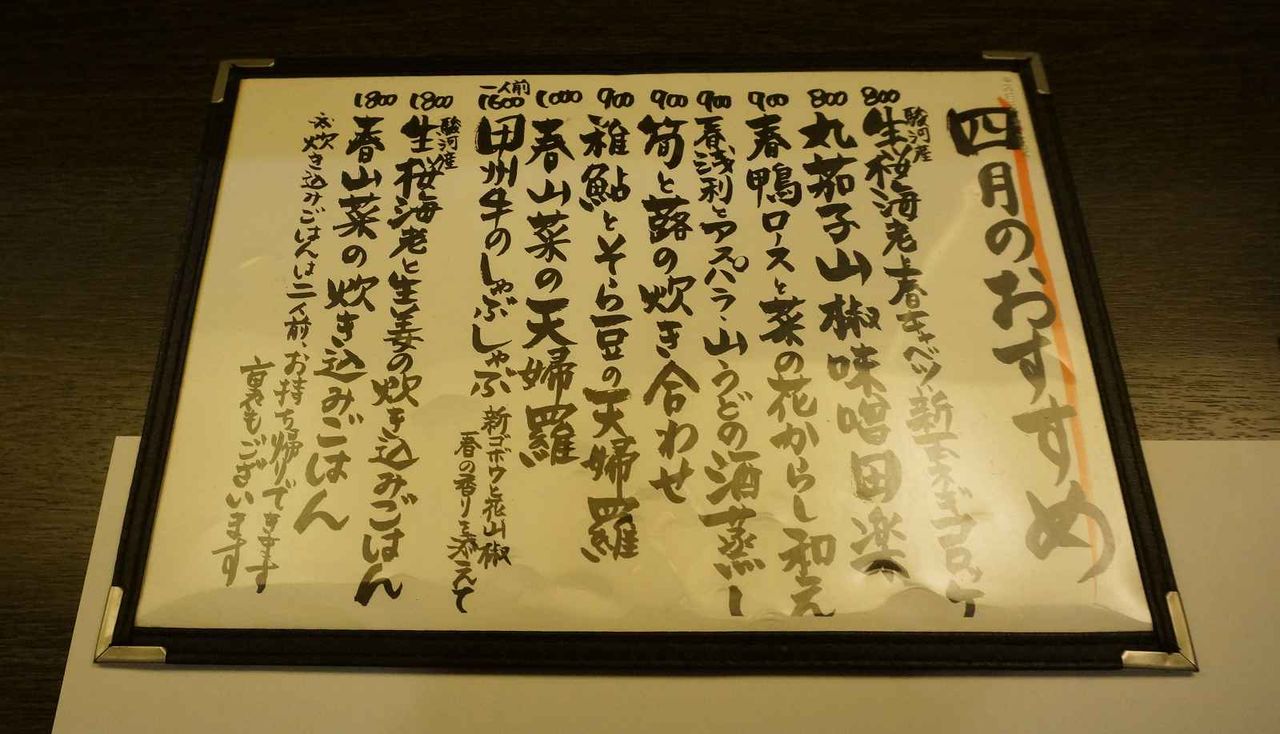 四月のおすすめ
800 駿河産 生桜海老と春キャベツ、新玉ネギコロッケ
800 丸茄子山椒味噌田楽
900 春鴨ロースと菜の花からし和え
900 春浅利とアスパラ、山うどの酒蒸し
900 筍と蕗の炊き合わせ
900 稚鮎とそら豆の天婦羅
1000 春山菜の天婦羅
一人前 1600 甲州牛のしゃぶしゃぶ 新ゴボウと花山椒
春の香りを添えて
1800 駿河産 生桜海老と生姜の炊き込みごはん
1800 春山菜の炊き込みごはん
炊き込みごはんは二人前、お持ち帰りできます
裏もございます